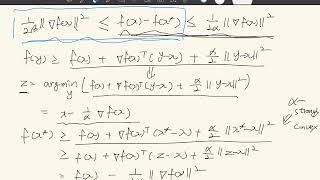 1/2β ‖∇f(x)‖² ≤ f(x) - f(x*) ≤ 1/2α ‖∇f(x)‖²
f(y) ≥ f(x) + ∇f(x)ᵀ(y-x) + α/2 ‖y-x‖²
z = argmin_y (f(x) + ∇f(x)ᵀ(y-x) + α/2 ‖y-x‖²)
= x - 1/α ∇f(x)
f(x*) ≥ f(x) + ∇f(x)ᵀ(x*-x) + α/2 ‖x*-x‖²
α-strongly convex
≥ f(x) + ∇f(x)ᵀ(z-x) + α/2 ‖z-x‖²
= f(x) - 1